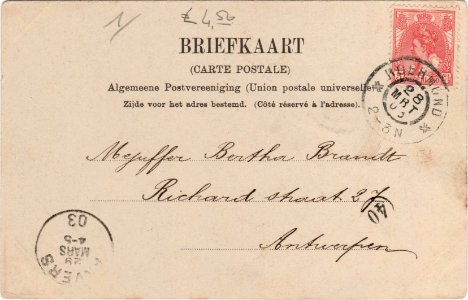 £ 4,50
BRIEFKAART
(CARTE POSTALE)
Algemeene Postvereeniging (Union postale universelle)
Zijde voor het adres bestemd. (Côté réservé à l'adresse).
ROERMOND
28
MRT
03
2-3N
Mejuffer Bertha Brandt
Richard straat 27
Antwerpen
40
ANVERS
29
MARS
4-5
03